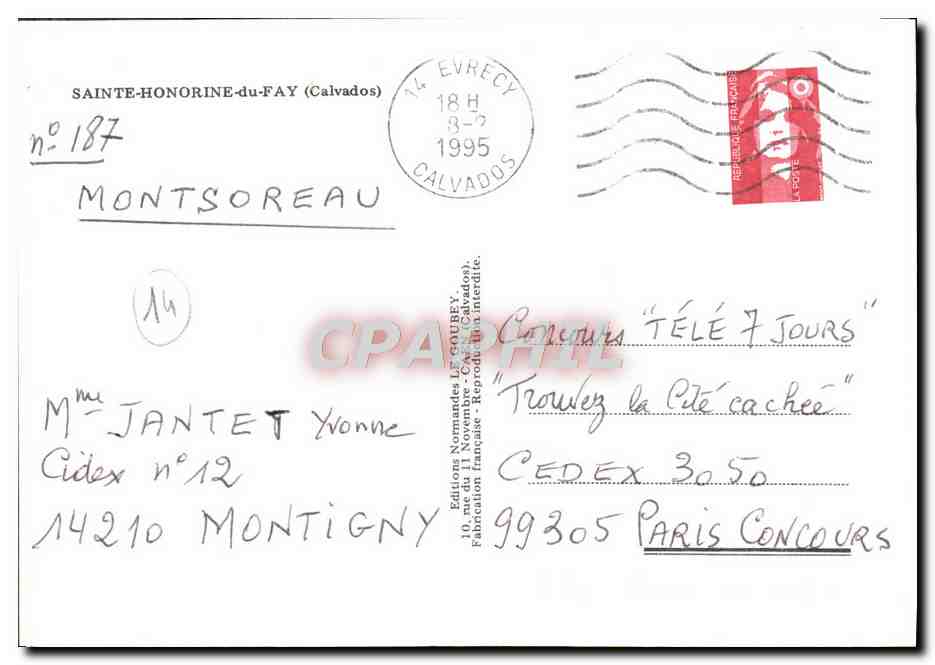 SAINTE-HONORINE-du-FAY (Calvados)
n° 187
MONTSOREAU
14 EVRECY
18 H
8-2
1995
CALVADOS
REPUBLIQUE FRANÇAISE
LA POSTE
14
CPAPHIL
Mme JANTET Yvonne
Cidex n° 12
14210 MONTIGNY
Editions Normandes LE GOUBEY.
10, rue du 11 Novembre - CAEN (Calvados).
Fabrication française - Reproduction interdite.
Concours "TÉLÉ 7 JOURS"
"Trouvez la Cité cachée"
CEDEX 3050
99305 PARIS CONCOURS